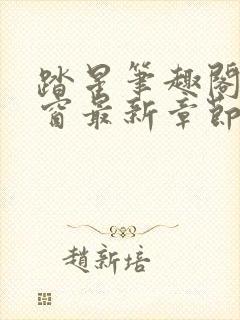 踏星筆趣閣
窗最新章節
趙新培